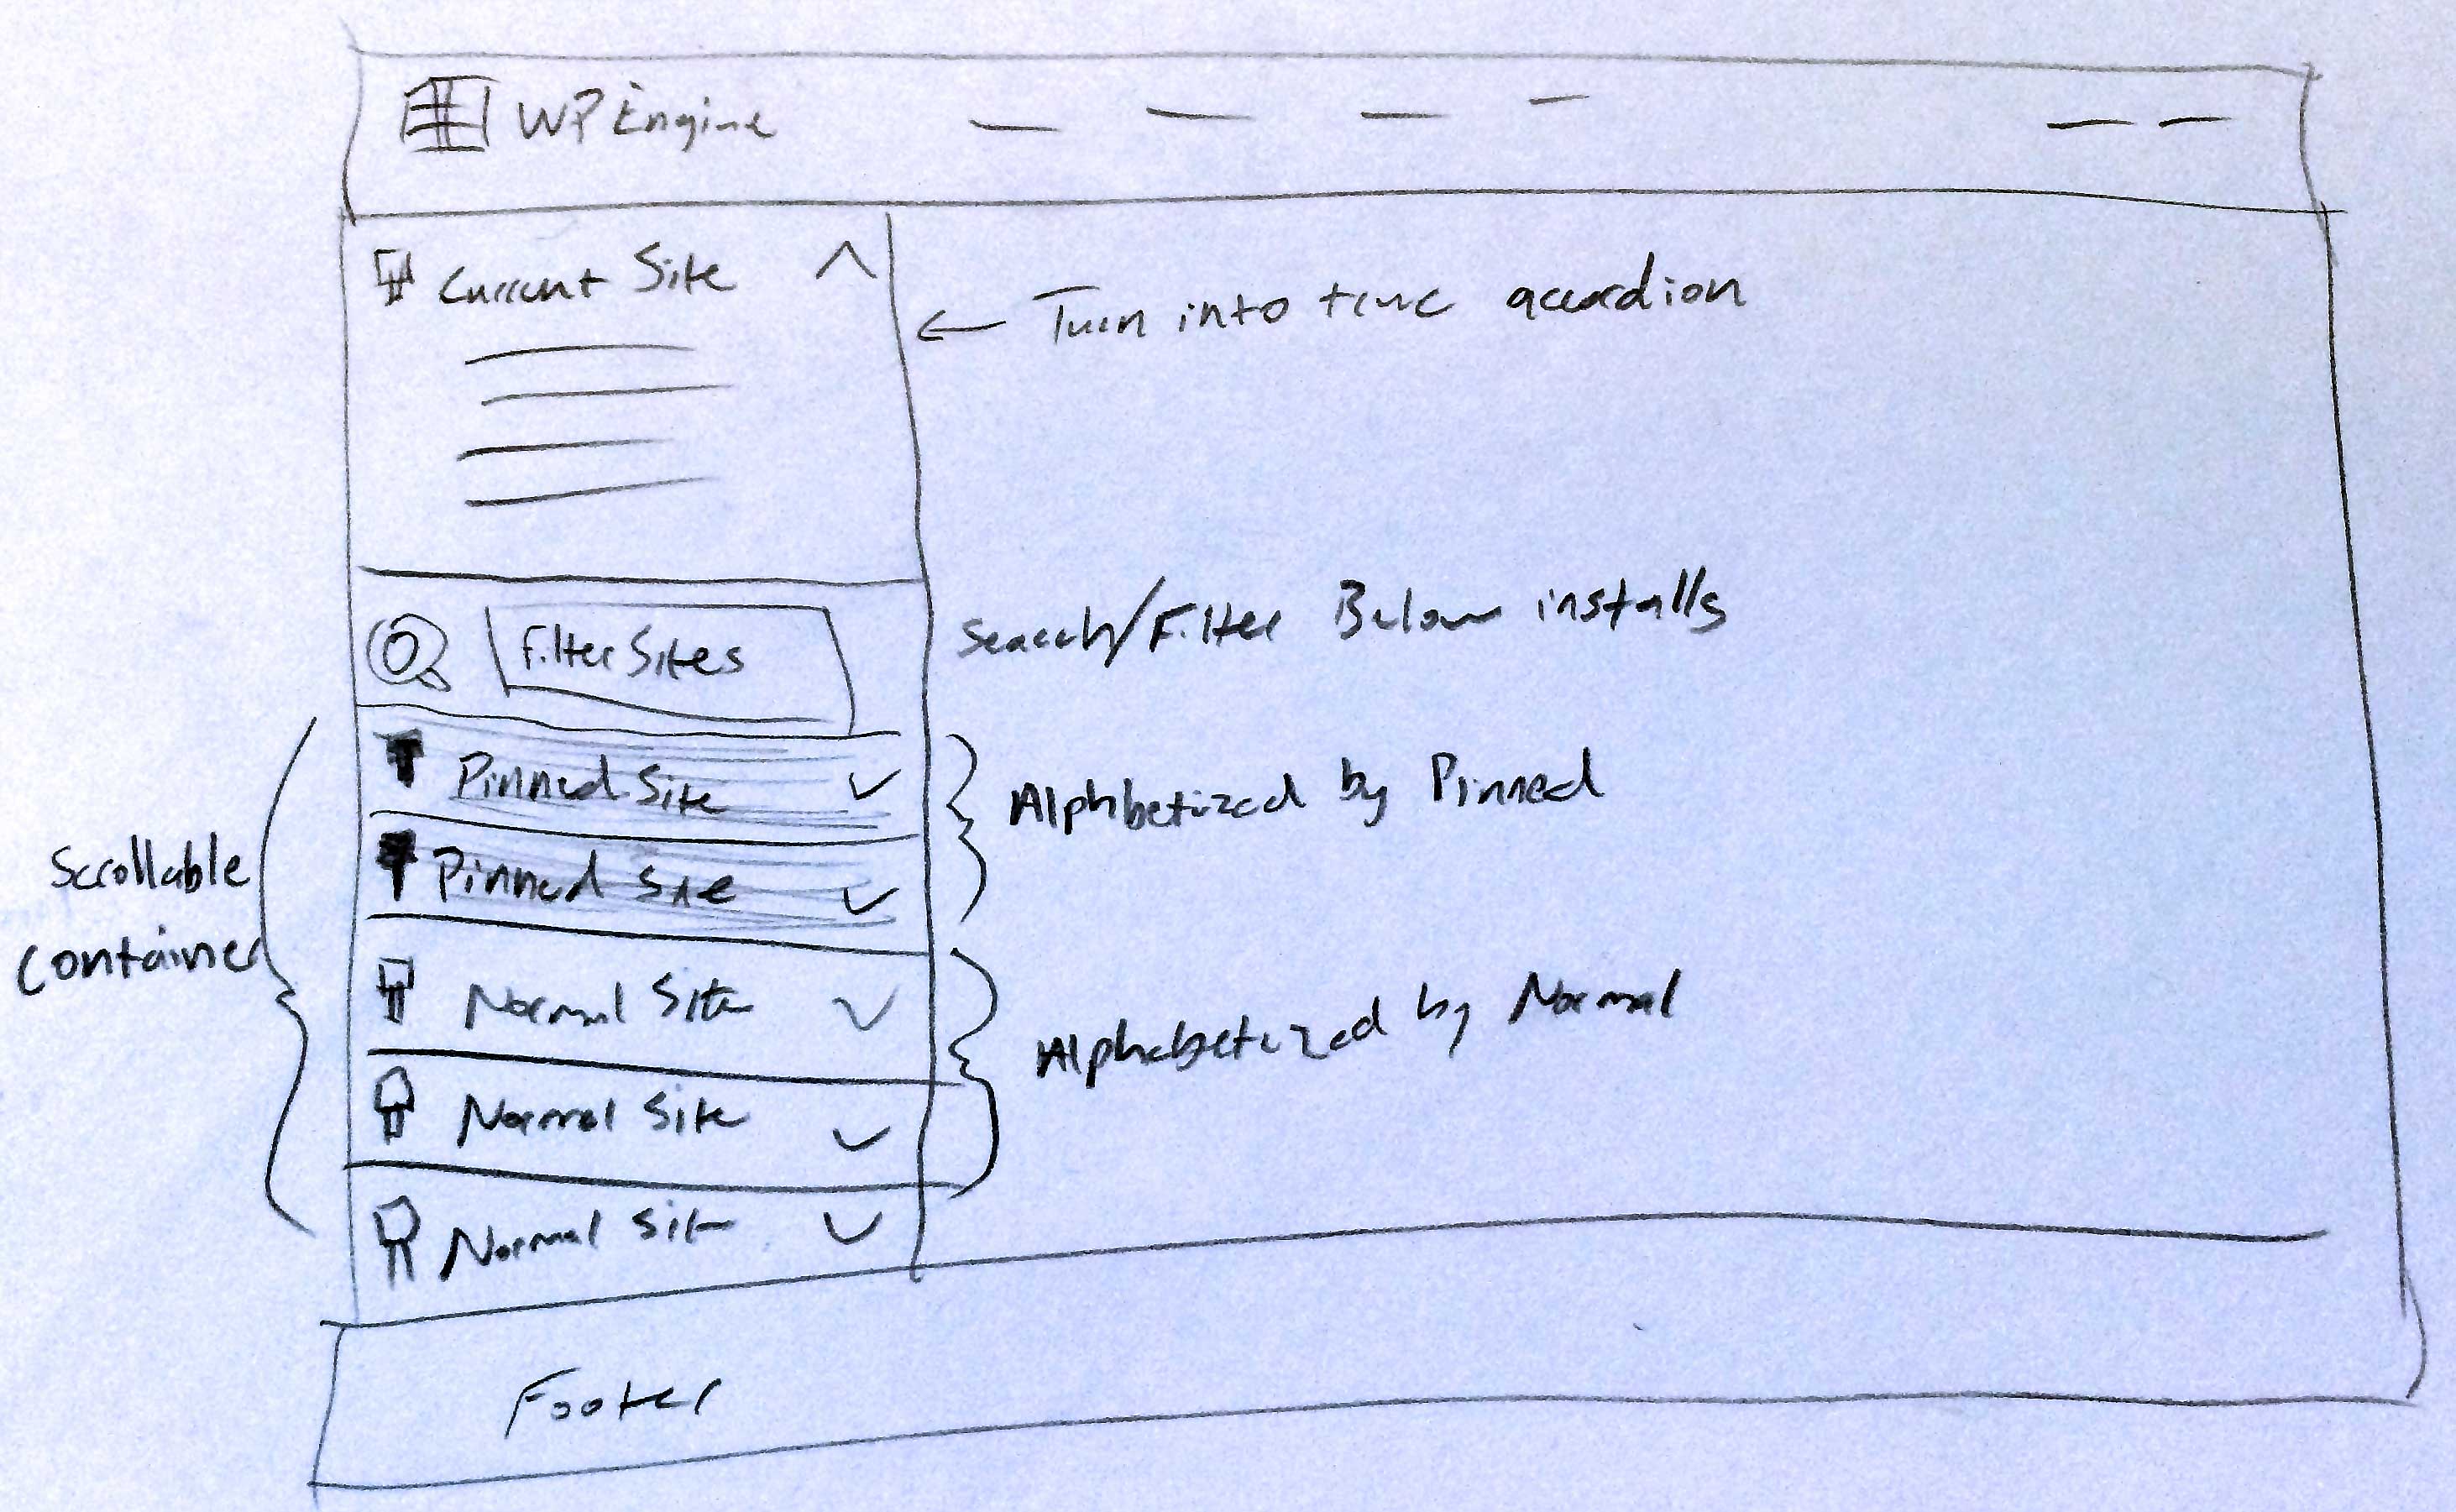 WP Engine
Current Site
← Turn into true accordion
Filter Sites
Search/Filter Below installs
Pinned Site
Alphbetized by Pinned
Pinned Site
Scrollable
Container
Normal Site
Alphabetized by Normal
Normal Site
Normal Site
Footer